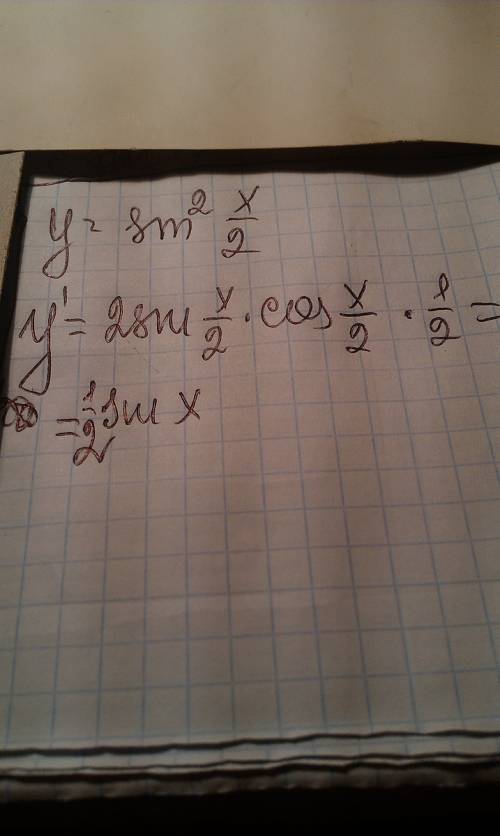 y = sin² x/2
y' = 2sin x/2 · cos x/2 · 1/2 =
= 1/2 sin x